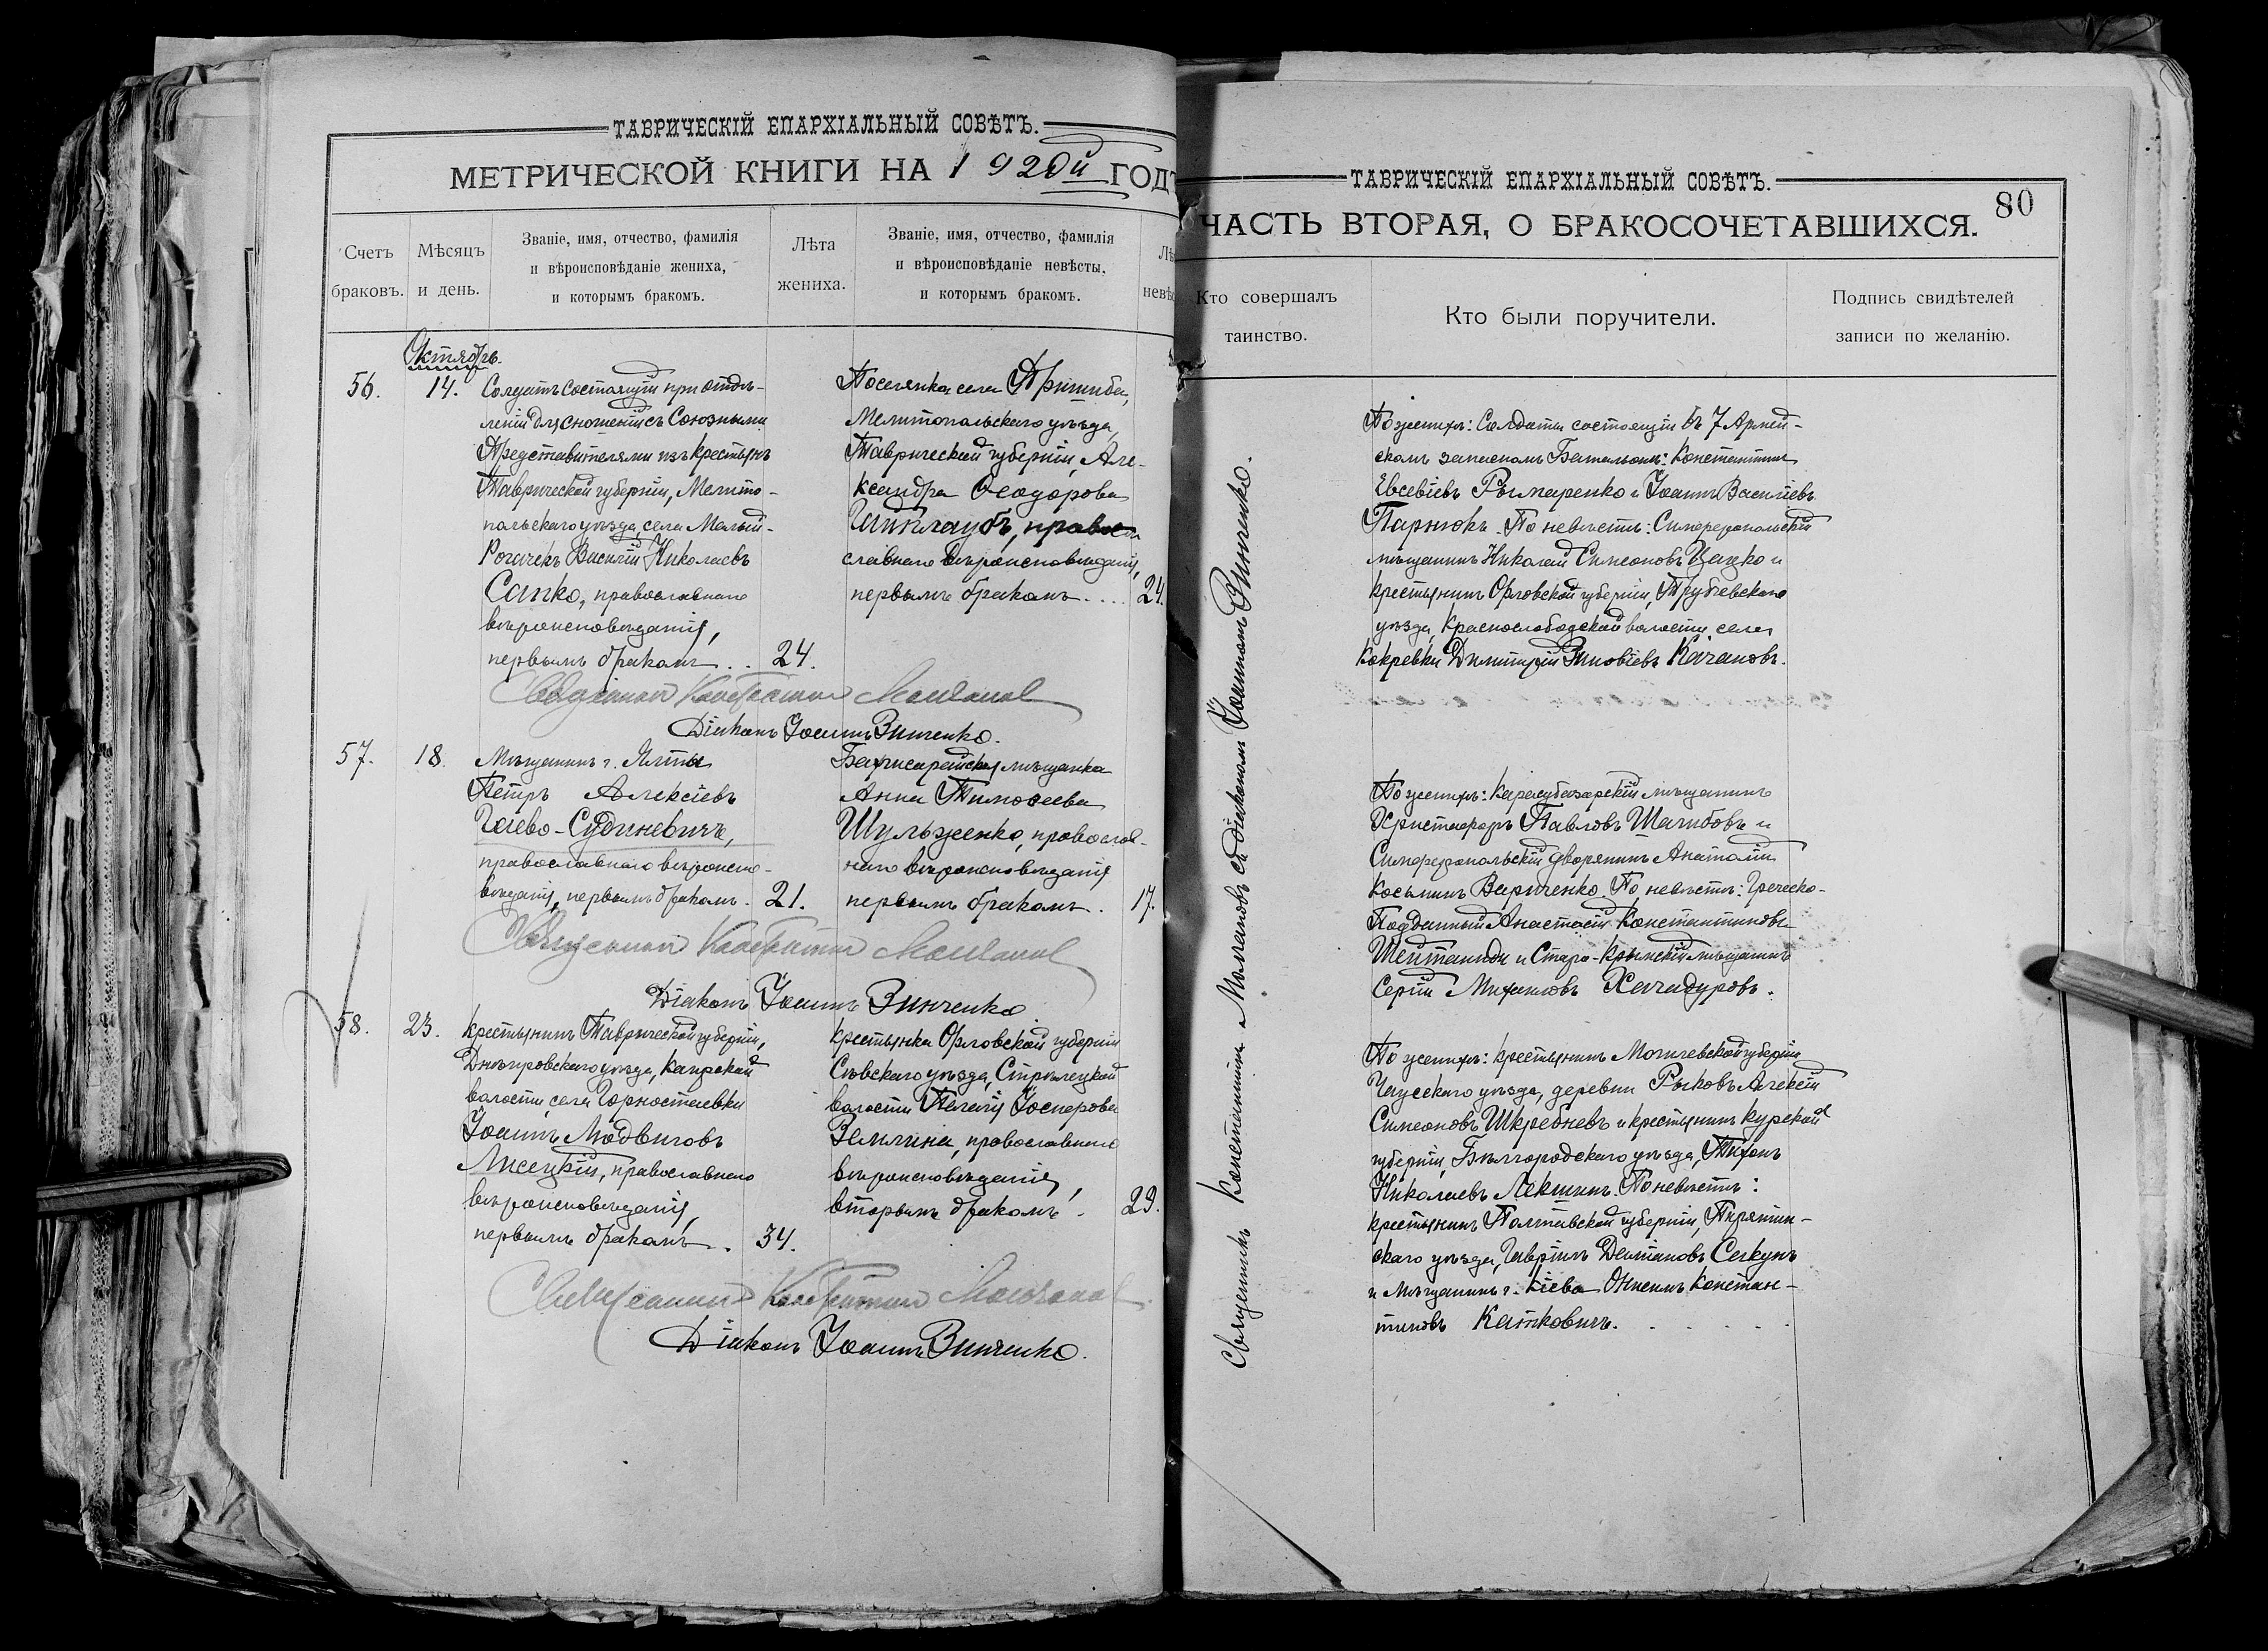 ТАВРИЧЕСКІЙ ЕПАРХІАЛЬНЫЙ СОВѢТЪ.
МЕТРИЧЕСКОЙ КНИГИ НА 1920й ГОДЪ
Счетъ браковъ.
Мѣсяцъ и день.
Званіе, имя, отчество, фамилія
и вѣроисповѣданіе жениха,
и которымъ бракомъ.
Лѣта жениха.
Званіе, имя, отчество, фамилія
и вѣроисповѣданіе невѣсты,
и которымъ бракомъ.
Октябрь.
56.
14.
Солдатъ состоящій при отдѣ-
леніи для сношенія съ Союзными
Представителями изъ крестьянъ
Таврической губерніи, Мелито-
польскаго уѣзда, села Малый-
Рогачекъ Василій Николаевъ
Сапко, православнаго
вѣроисповѣданія,
первымъ бракомъ . . 24.
Поселянка села Пришиба,
Мелитопольскаго уѣзда,
Таврической губерніи, Але-
ксандра Ѳеодорова
православнаго вѣроисповѣданія,
первымъ бракомъ . . . . 24.
Священникъ Константинъ Молчановъ
Діаконъ Іоаннъ Зинченко.
57.
18.
Мѣщанинъ г. Ялты
Петръ Алексіевъ
Гаево-Судиневичъ,
православнаго вѣроиспо-
вѣданія, первымъ бракомъ. 21.
Бахчисарайская мѣщанка
Анна Тимоѳеева
Шульженко, православ-
наго вѣроисповѣданія
первымъ бракомъ . . 17.
Священникъ Константинъ Молчановъ
Діаконъ Іоаннъ Зинченко
58.
23.
Крестьянинъ Таврической губерніи,
Днѣпровскаго уѣзда, Каирской
волости, села Горностаевки
Іоаннъ Людвиговъ
Лисецкій, православнаго
вѣроисповѣданія,
первымъ бракомъ . . 34.
Крестьянка Орловской губерніи
Сѣвскаго уѣзда, Стрѣлецкой
волости Пелагія
Землина, православнаго
вѣроисповѣданія,
вторымъ бракомъ . 29.
Священникъ Константинъ Молчановъ
Діаконъ Іоаннъ Зинченко.
ТАВРИЧЕСКІЙ ЕПАРХІАЛЬНЫЙ СОВѢТЪ.
80
ЧАСТЬ ВТОРАЯ, О БРАКОСОЧЕТАВШИХСЯ.
Кто совершалъ таинство.
Кто были поручители.
Подпись свидѣтелей
записи по желанію.
Священникъ Константинъ Молчановъ съ діакономъ Іоанномъ Зинченко.
По женихѣ: Солдаты состоящіи въ 7 Армей-
скомъ запасномъ Баталіонѣ: Константинъ
Евсевіевъ Рымаренко и Іоаннъ Василіевъ
Парнюкъ. По невѣстѣ: Симферопольскій
мѣщанинъ Николай Симеоновъ Цацко и
крестьянинъ Орловской губерніи, Трубчевскаго
уѣзда, Краснослободской волости, села
Кокревки Димитрій Зиновіевъ Качановъ.
По женихѣ: Карасубазарскій мѣщанинъ
Христофоръ Павловъ Шагибовъ и
Симферопольскій дворянинъ Анатолій
Косьминъ Вариченко. По невѣстѣ: Греческо-
Подданный Анастасій Константиновъ
Шейтаниди и Старо-Крымскій мѣщанинъ
Сергій Михаиловъ Хачадуровъ.
По женихѣ: крестьянинъ Могилевской губерніи
Чаусскаго уѣзда, деревни Рыковъ Алексій
Симеоновъ Шкребневъ и крестьянинъ Курской
губерніи, Бѣлгородскаго уѣзда, Тихонъ
Николаевъ Лекшинъ. По невѣстѣ:
крестьянинъ Полтавской губерніи, Пирятин-
скаго уѣзда, Гавріилъ Даміановъ Секунъ
и мѣщанинъ г. Кіева Онисимъ Констан-
тиновъ Катковичъ.